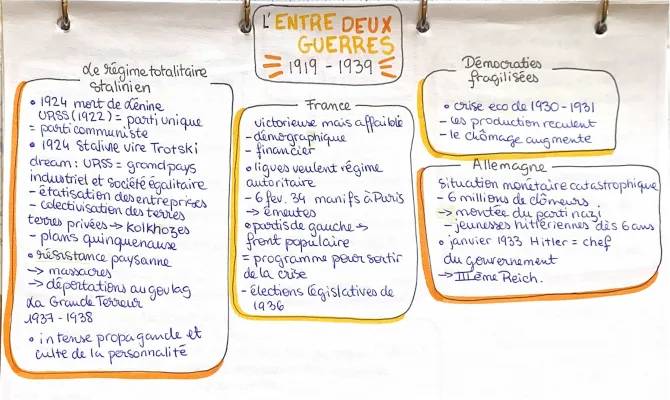 L'ENTRE DEUX
GUERRES
1919 - 1939
Le régime totalitaire
stalinien
• 1924 mort de Lénine
URSS (1922) = parti unique
= parti communiste
• 1924 Staline vire Trotski
dream : URSS = grand pays
industriel et société égalitaire
- étatisation des entreprises
- colectivisation des terres
terres privées → kolkhozes
- plans quinquenause
• résistance paysanne
→ massacres
→ déportations au goulag
La Grande Terreur
1937 - 1938
• intense propagande et
culte de la personnalité
France
victorieuse mais affaiblie
- démographique
- financier
• ligues veulent régime
autoritaire
- 6 fev. 34 manifs à Paris
→ émeutes
• partis de gauche →
front populaire
= programme pour sortir
de la crise
- élections législatives de
1936
Démocraties
fragilisées
• crise eco de 1930 - 1931
- les production reculent
- le chômage augmente
Allemagne
situation monétaire catastrophique
- 6 millions de chômeurs
→ montée du parti nazi
- jeunesses hitlériennes dès 6 ans
• janvier 1933 Hitler = chef
du gouvernement
→ IIIème Reich.